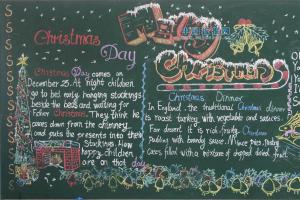 Christmas
Day
Christmas Day comes on
December 25. At night children
go to bed early, hanging stockings
beside the beds and waiting for
Father Christmas. They think he
comes down from the chimney
and puts the presents into their
stockings. How
happy children
are on that day
Merry
Christmas
Christmas Dinner
In England, the traditional Christmas dinner
is roast turkey with vegetable and sauces.
For dessert it is rich, fruity Christmas
Pudding with brandy sauce. Mince pies, Pastry
cases filled with a mixture of chopped dried fruit.